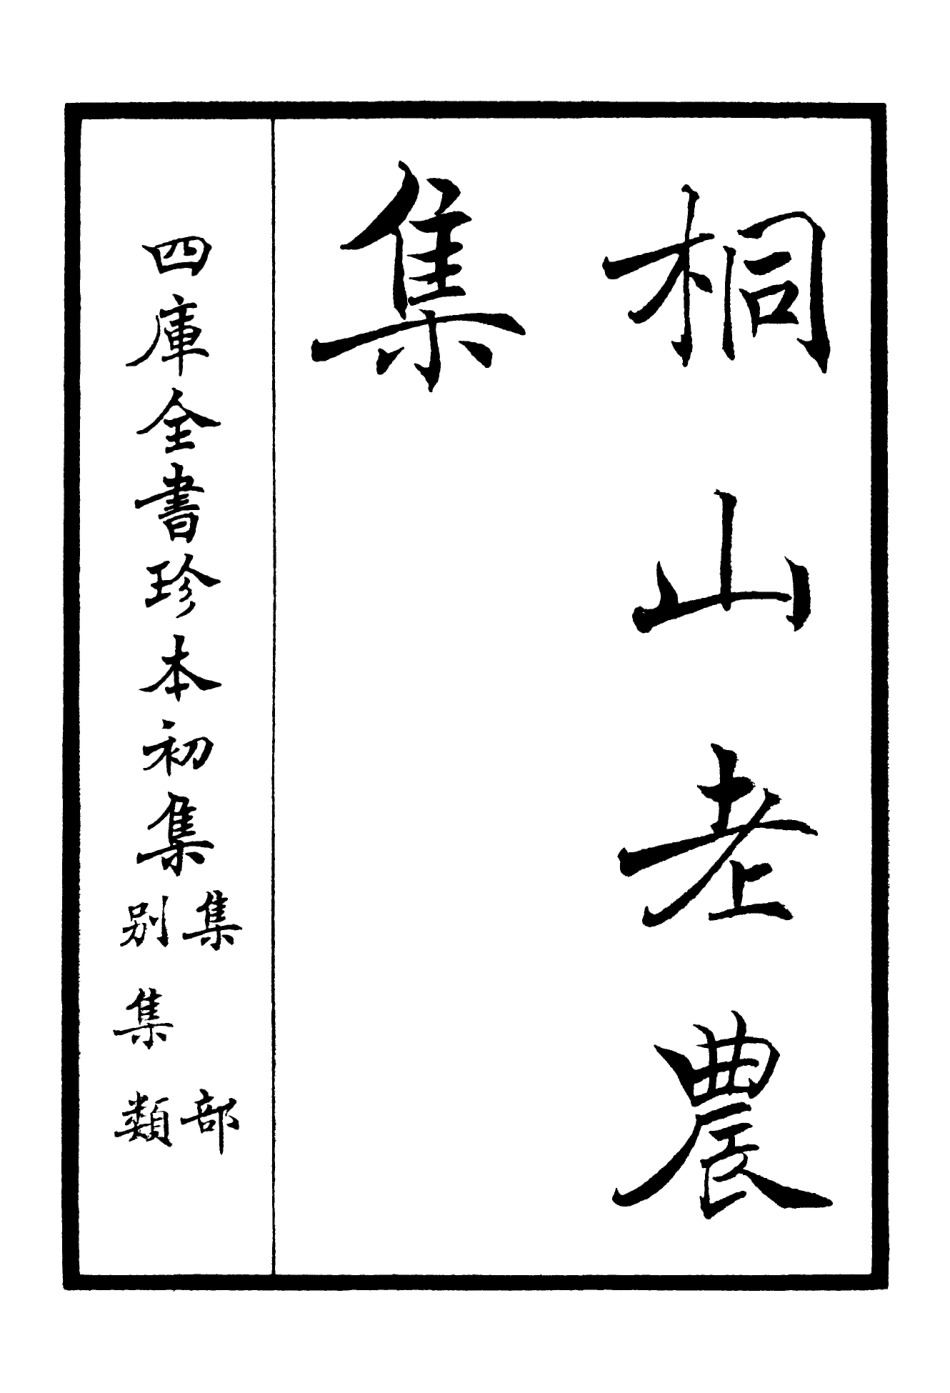 桐山老農
集
四庫全書珍本初集
集部
別集類